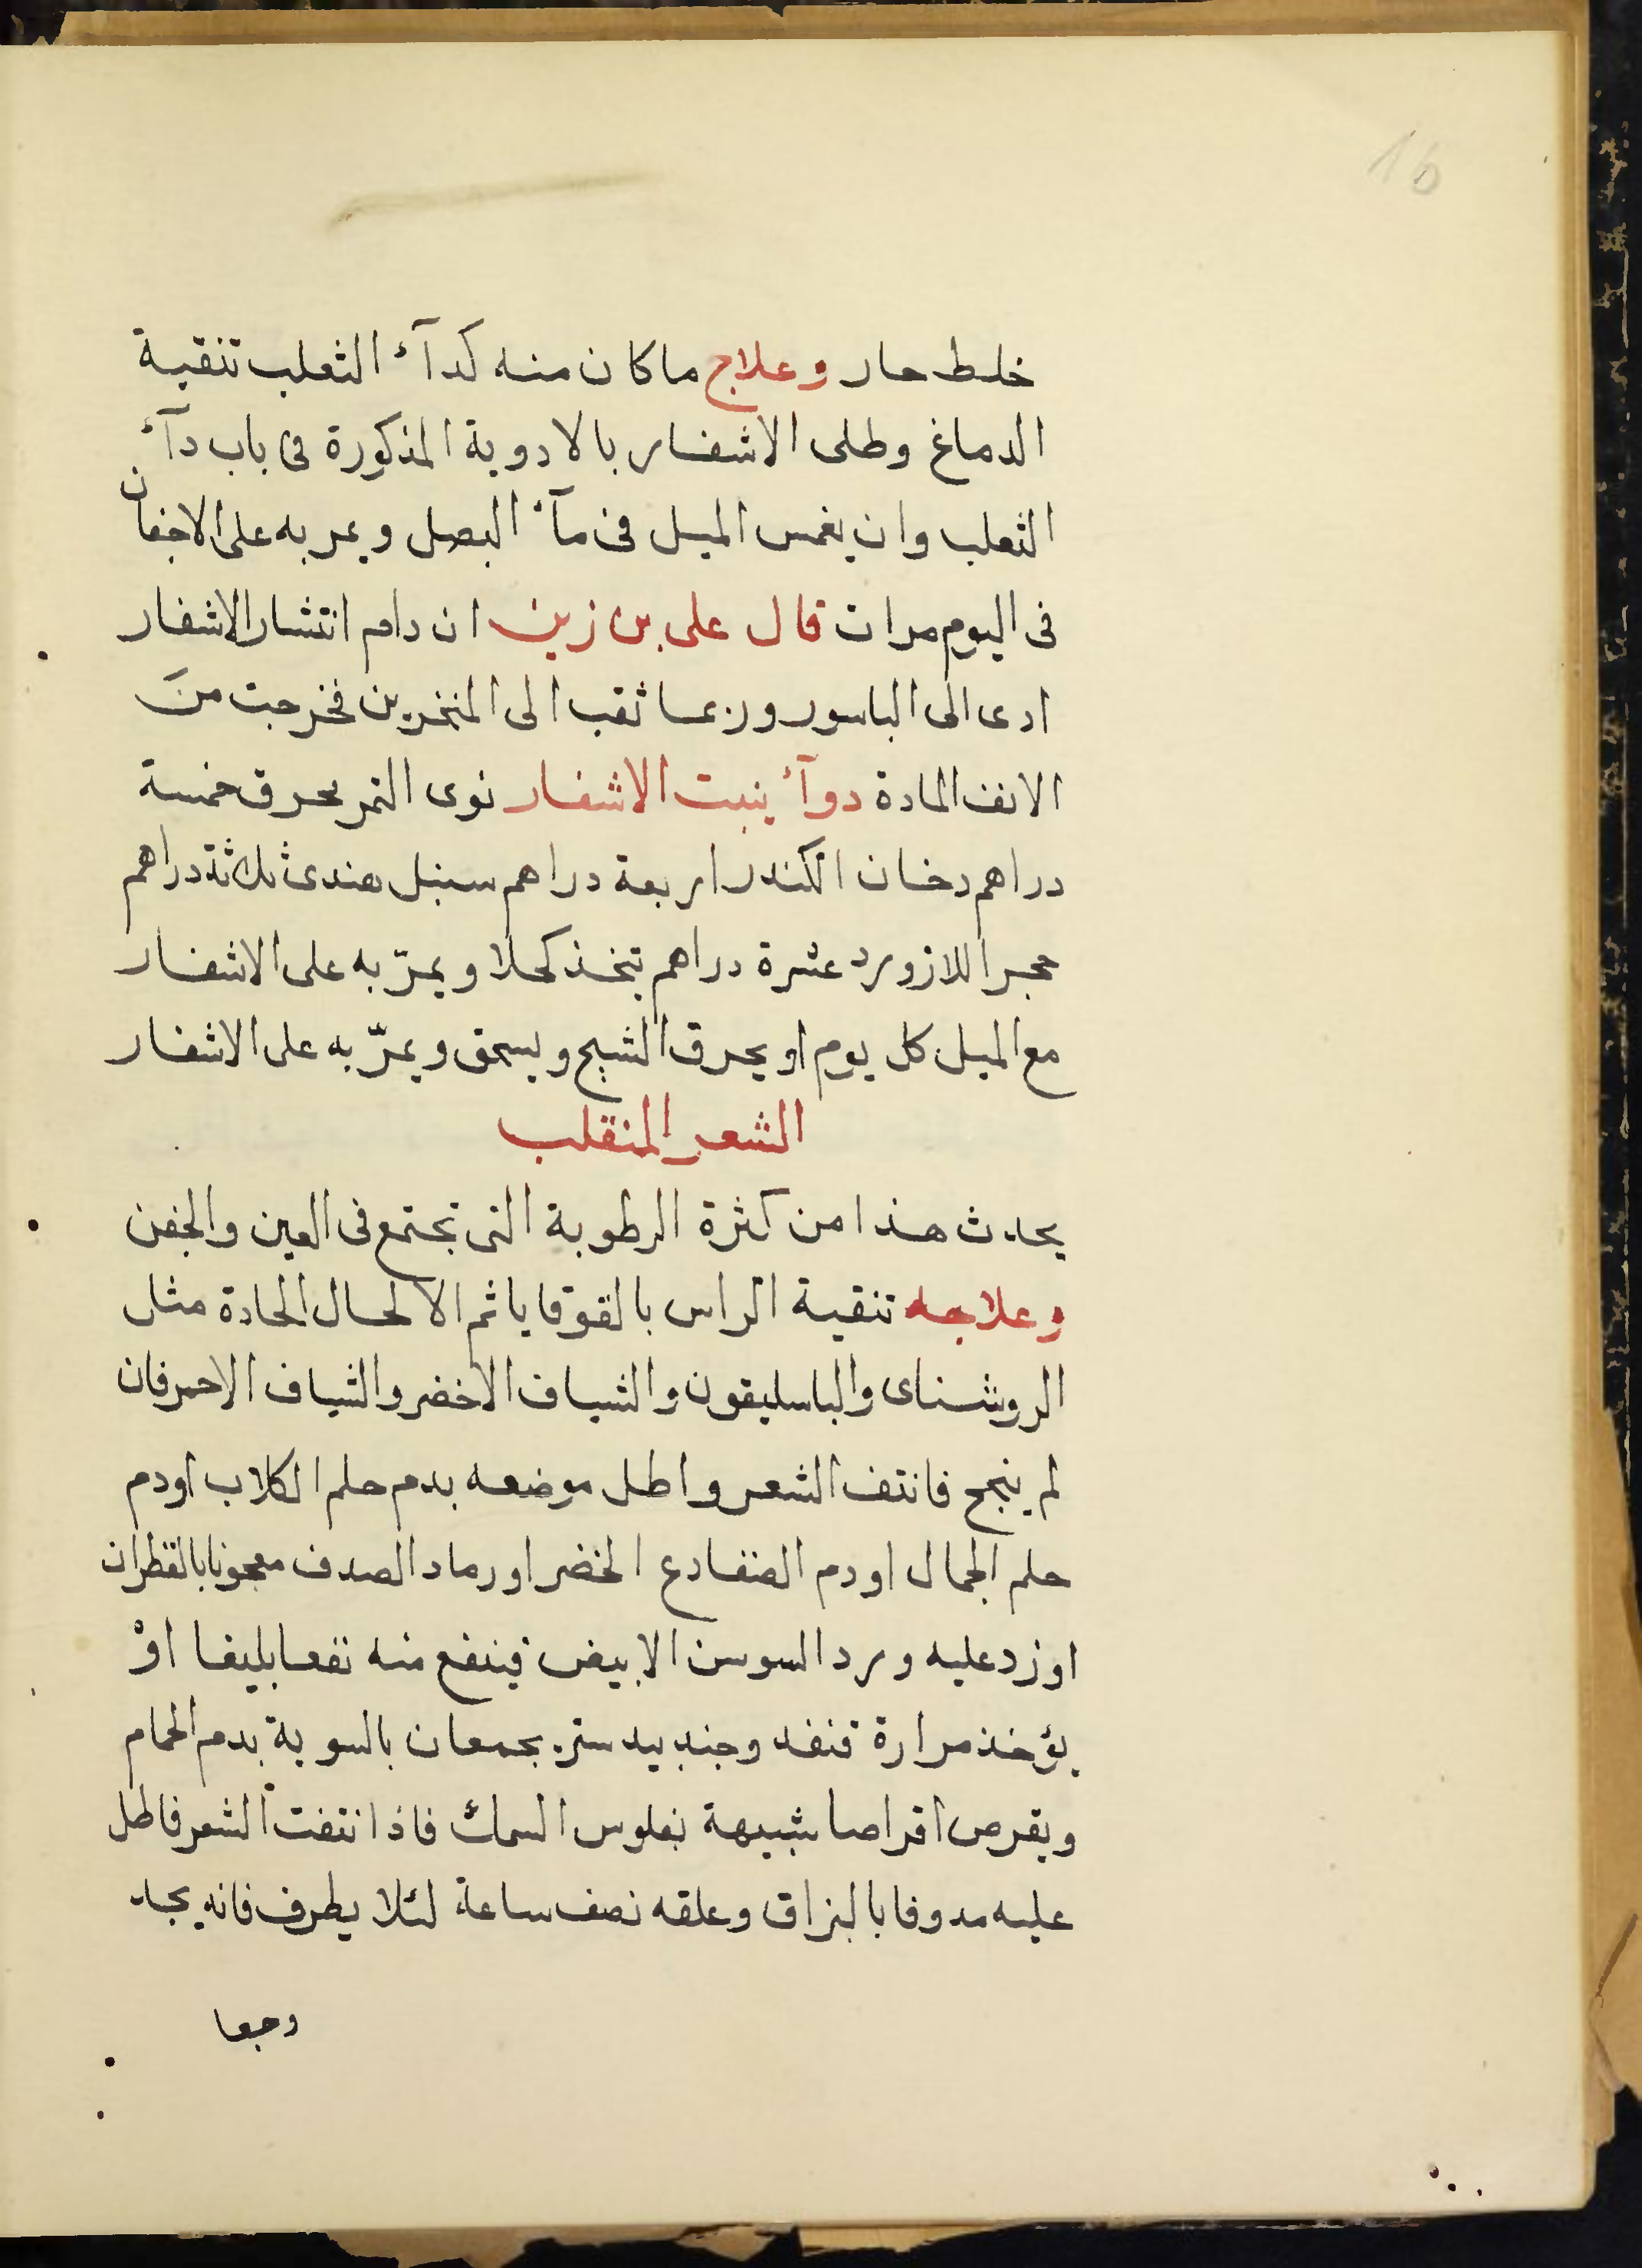 16
خلط حار وعلاج ما كان منه كدآء الثعلب تنقية
الدماغ وطلى الاشفار بالادوية المذكورة فى باب دآء
الثعلب وان يغمس الميل فى مآء البصل ويمر به على الاجفان
فى اليوم مرات قال على بن زين ان دام انتشار الاشفار
ادى الى الباسور وربما ثقب الى المنخرين فخرجت من
الانف المادة دوآء ينبت الاشفار نوى التمر يحرق خمسة
دراهم دخان الكندر اربعة دراهم سنبل هندى ثلاثة دراهم
حجر اللازورد عشرة دراهم يتخذ كحلا ويمرّ به على الاشفار
مع الميل كل يوم او يحرق الشيح ويسحق ويمرّ به على الاشفار
الشعر المنقلب
يحدث هذا من كثرة الرطوبة التى تجتمع فى العين والجفن
وعلاجه تنقية الراس بالقوقايا ثم الاكحال الحادة مثل
الروشناى والباسليقون والشياف الاخضر والشياف الاحمر فان
لم ينجح فانتف الشعر واطل موضعه بدم حلم الكلاب اودم
حلم الجمال او دم الضفادع الخضر او رماد الصدف معجونا بالقطران
او زد عليه ورد السوسن الابيض فينفع منه نفعا بليغا اوْ
يؤخذ مرارة قنفد وجندبيدستر يجمعان بالسوية بدم الحمام
ويقرص اقراصا شبيهة بفلوس السمك فاذا نتفت الشعر فاطل
عليه مدوفا بالبزاق وعلقه نصف ساعة لئلا يطرف فانه يجد
وجعا